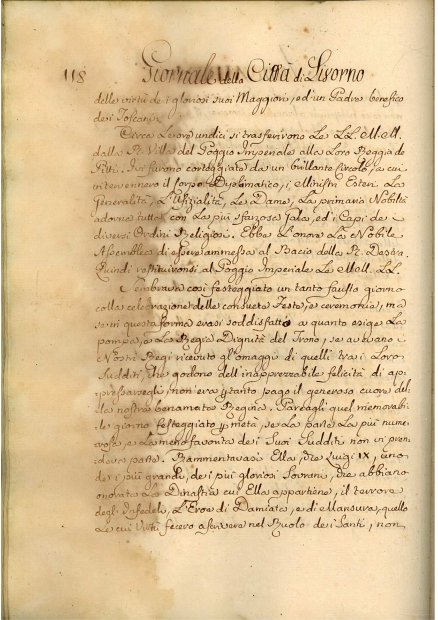 118 Giornale della Città di Livorno
delle virtù de i gloriosi suoi Maggiori, ed un Padre benefico
dei Toscani.
Circa le ore undici si trasferirono Le LL. MM.
dalla R. Villa del Poggio Imperiale alla Loro Reggia de
Pitti. Ivi furono corteggiate da un brillante Circolo, a cui
intervennero il Corpo Diplomatico, i Ministri Esteri La
Generalità, L'Ufizialità, Le Dame, La primaria Nobiltà
adorna tutta con La più sfarzosa Gala, ed i Capi de i
diversi Ordini Religiosi. Ebbe L'onore La Nobile
Assemblea di essere ammessa al Bacio della R. Destra.
Quindi restituironsi al Poggio Imperiale Le MM. LL.
Sembrava così festeggiato un tanto fausto giorno
colla celebrazione delle consuete Feste, e ceremonie, ma
se in questa forma erasi soddisfatto a quanto esige La
pompa, e La Regia Dignità del Trono, se avevano i
Nostri Regi ricevuto gl'omaggi di quelli trai Loro
Sudditi, che godono dell'inapprezzabile felicità di ap-
pressarvegli, non era ptanto pago il generoso cuore del-
la nostra benamata Regina. Pareagli quel memorabi-
le giorno festeggiato p metà, se La parte La più nume-
rosa, e La meno favorita dei Suoi Sudditi non vi pren-
deva parte. Rammentavasi Ella, che Luigi IX, uno
de i più grandi, de i più gloriosi Sovrani, che abbiano
onorata La Dinastia cui Ella appartiene, il terrore
degl'Infedeli, L'Eroe di Damiata, e di Mansura, quello
Le cui Virtù fecero ascrivere nel Ruolo dei Santi, non